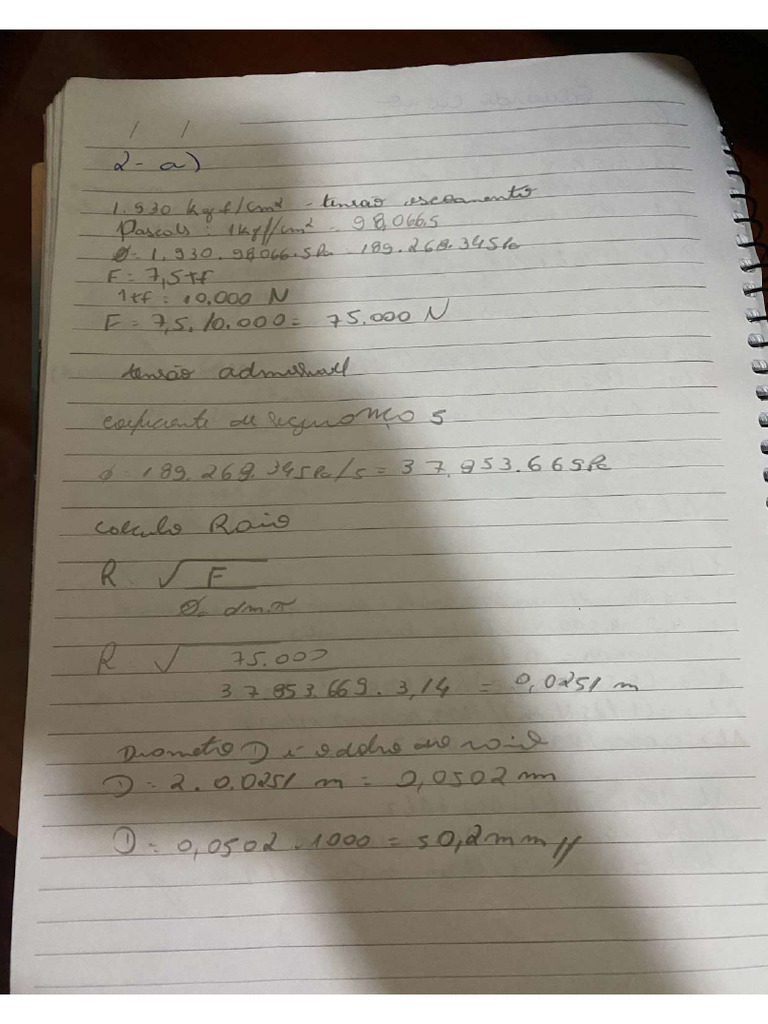 / /
2- a)
1.930 kgf/cm² - tensão escoamento
Pascals: 1kgf/cm² = 98,066.5
Ø = 1.930 . 98066.5Pa 189.268.345Pa
F = 7,5tf
1tf = 10.000 N
F = 7,5.10.000 = 75.000 N
tensão admissivel
coeficiente de segurança 5
Ø = 189.269.345Pa/5 = 37.853.669Pa
calculo Raio
R √ F
Ø. dm.π
R √ 75.000
37.853.669 . 3,14 = 0,0251 m
Diametro D é o dobro do raio
D = 2 . 0.0251 m = 0,0502 mm
D = 0,0502 . 1000 = 50,2mm //